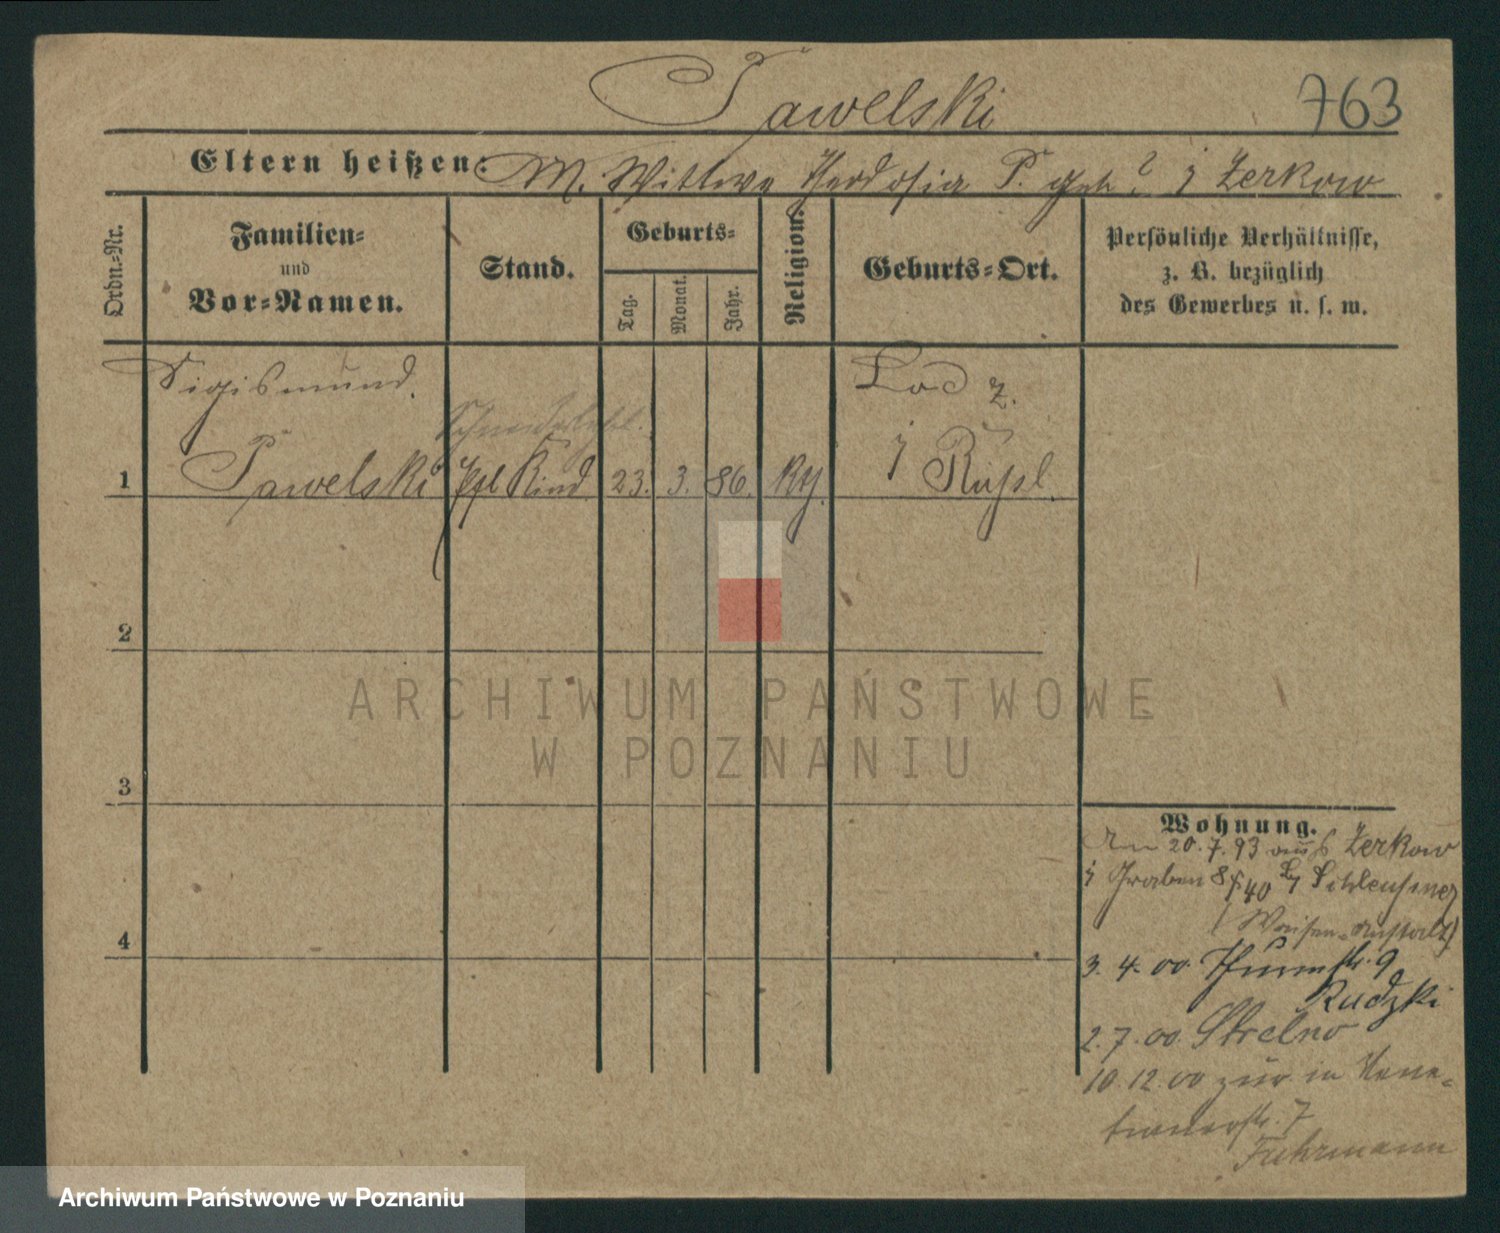 Pawelski
763
Eltern heißen: M. Wittwe Theodosia P. geb. ? i Zerkow
Ordn.-Nr.
Familien-
und
Vor-Namen.
Stand.
Geburts-
Tag.
Monat.
Jahr.
Religion.
Geburts-Ort.
Persönliche Verhältnisse,
z. B. bezüglich
des Gewerbes u. s. w.
Sigismund.
Lodz.
Schneiderlehrl.
1 Pawelski Kind 23. 3. 86. i
2
ARCHIWUM PAŃSTWOWE
W POZNANIU
3
4
Wohnung.
20.7.93 aus Zerkow
i Graben 8
(Waisen-Anstalt)
3. 4. 00. Thurmstr. 9
Rudzki
2. 7. 00. Strelno
10. 12. 00 zur in Vene-
tianerstr. 7
Fuhrmann
Archiwum Państwowe w Poznaniu